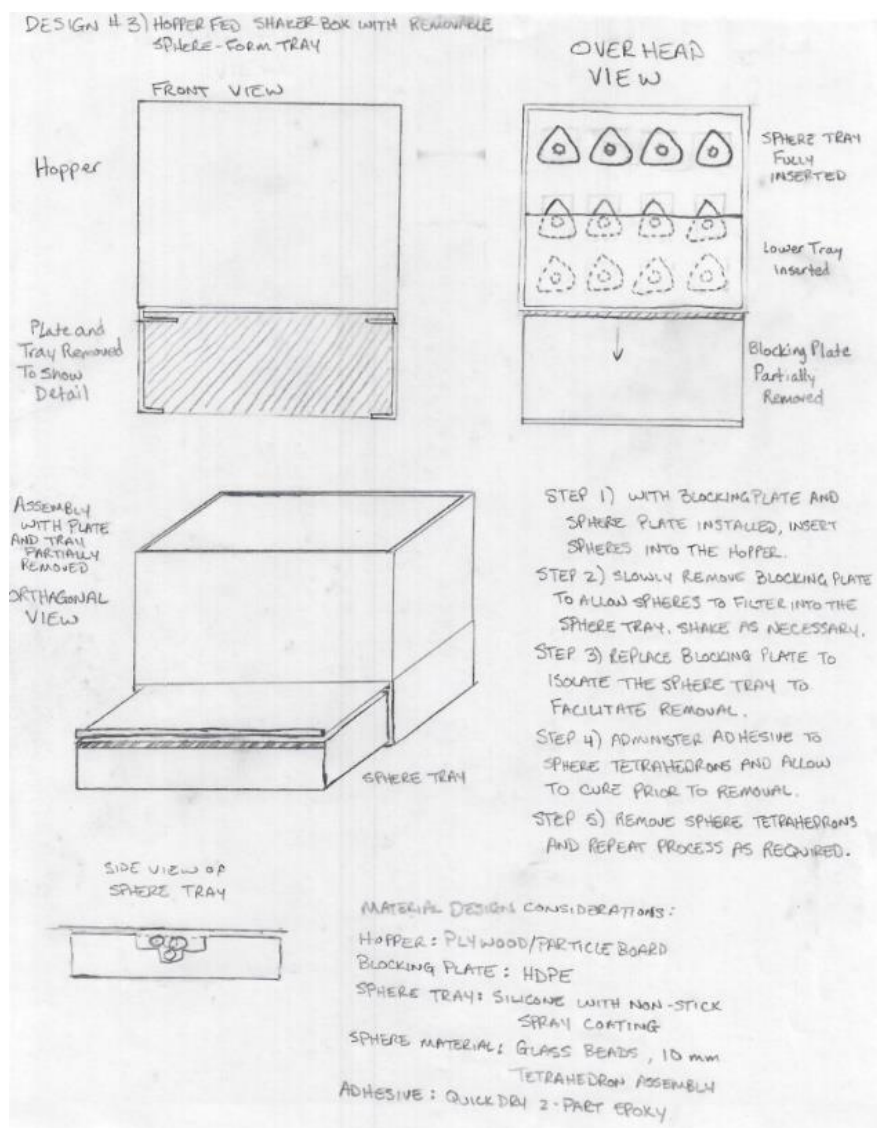 DESIGN # 3) HOPPER FED SHAKER BOX WITH REMOVABLE
SPHERE-FORM TRAY
FRONT VIEW
Hopper
Plate and
Tray Removed
To Show
Detail
OVERHEAD
VIEW
SPHERE TRAY
FULLY
INSERTED
Lower Tray
Inserted
Blocking Plate
Partially
Removed
ASSEMBLY
WITH PLATE
AND TRAY
PARTIALLY
REMOVED
ORTHAGONAL
VIEW
SPHERE TRAY
STEP 1) WITH BLOCKING PLATE AND
SPHERE PLATE INSTALLED, INSERT
SPHERES INTO THE HOPPER.
STEP 2) SLOWLY REMOVE BLOCKING PLATE
TO ALLOW SPHERES TO FILTER INTO THE
SPHERE TRAY. SHAKE AS NECESSARY.
STEP 3) REPLACE BLOCKING PLATE TO
ISOLATE THE SPHERE TRAY TO
FACILITATE REMOVAL.
STEP 4) ADMINISTER ADHESIVE TO
SPHERE TETRAHEDRONS AND ALLOW
TO CURE PRIOR TO REMOVAL.
STEP 5) REMOVE SPHERE TETRAHEDRONS
AND REPEAT PROCESS AS REQUIRED.
SIDE VIEW OF
SPHERE TRAY
MATERIAL DESIGN CONSIDERATIONS:
HOPPER: PLYWOOD/PARTICLE BOARD
BLOCKING PLATE: HDPE
SPHERE TRAY: SILICONE WITH NON-STICK
SPRAY COATING
SPHERE MATERIAL: GLASS BEADS, 10 mm
TETRAHEDRON ASSEMBLY
ADHESIVE: QUICK DRY 2-PART EPOXY